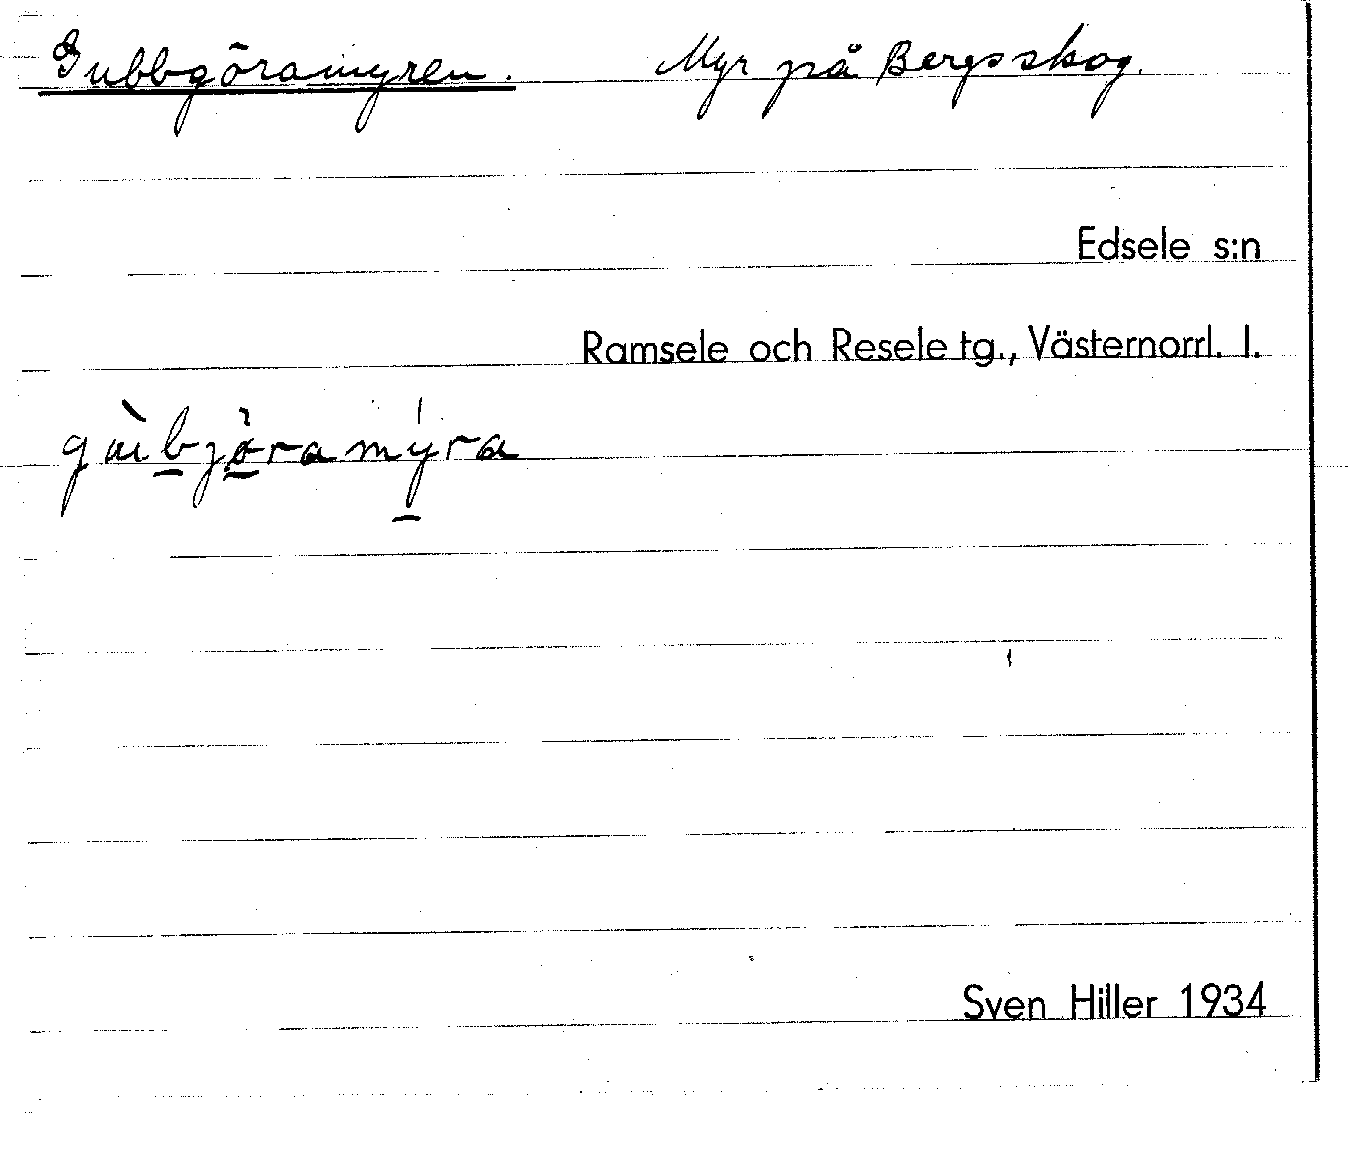 Gubbgöramyren. Myr på Bergsskog.
Edsele s:n
Ramsele och Resele tg., Västernorrl. l.
Sven Hiller 1934